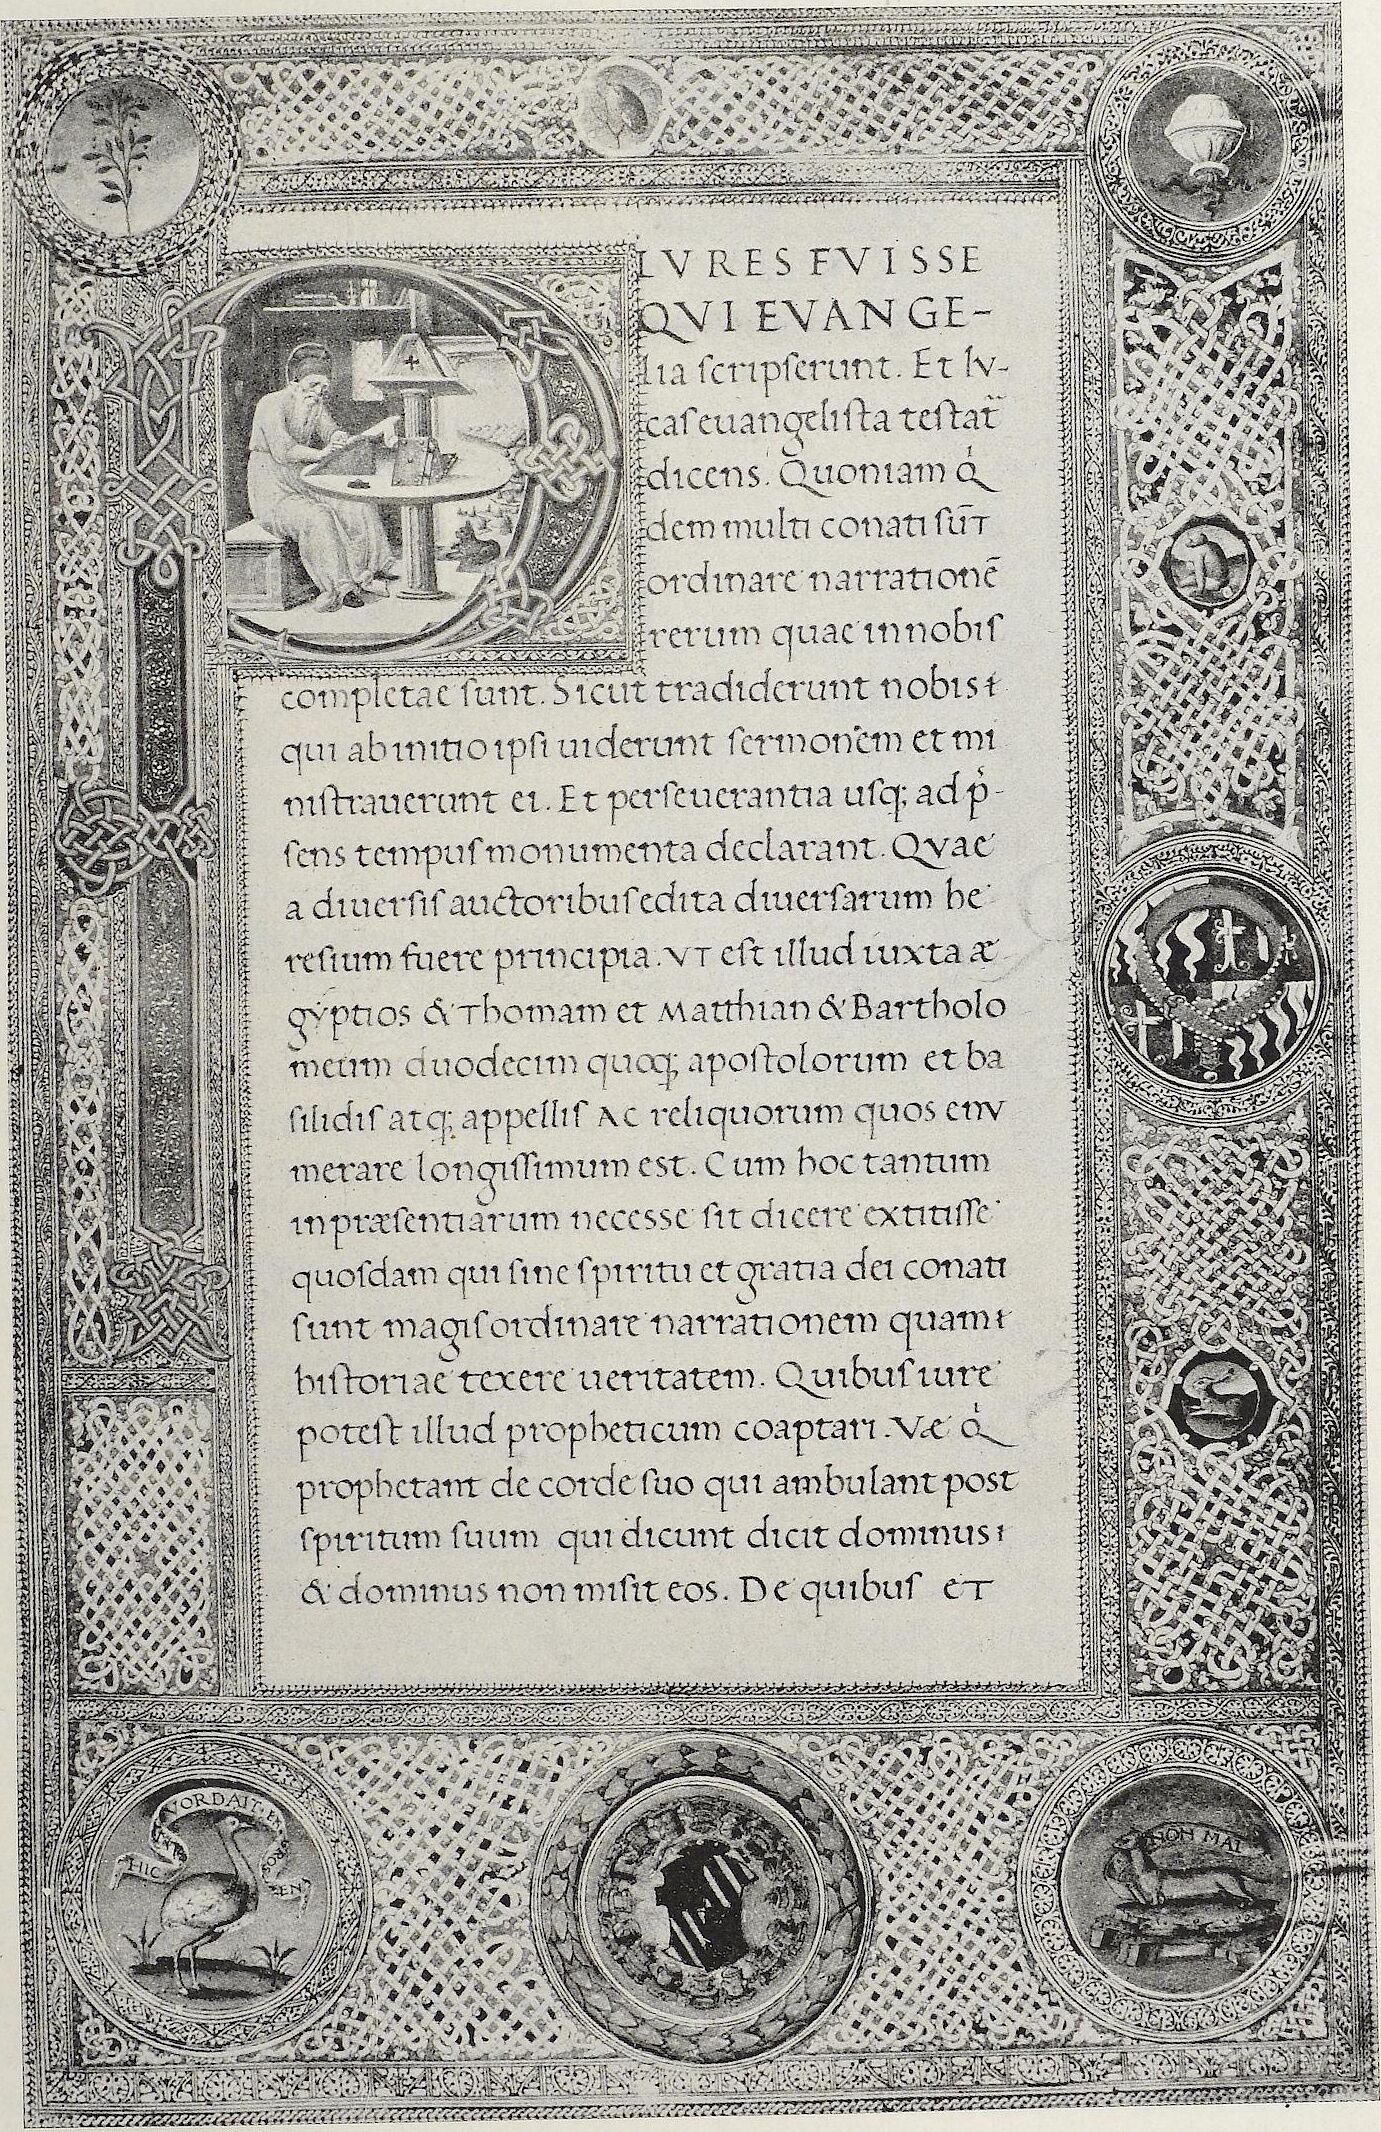 PLVRES FVISSE
QVI EVANGE-
lia scripserunt. Et lv-
cas euangelista testat̄
dicens. Quoniam q̇
dem multi conati sūt
ordinare narrationē
rerum quae in nobis
completae sunt. Sicut tradiderunt nobis
qui ab initio ipsi uiderunt sermonem et mi
nistrauerunt ei. Et perseuerantia usq; ad p̄-
sens tempus monumenta declarant. Qvae
a diuersis auctoribus edita diuersarum he
resium fuere principia. VT est illud iuxta æ
gyptios & Thomam et Matthian & Bartholo
meum duodecim quoq; apostolorum et ba
silidis atq; appellis AC reliquorum quos env
merare longissimum est. Cum hoc tantum
in præsentiarum necesse sit dicere extitisse
quosdam qui sine spiritu et gratia dei conati
sunt magis ordinare narrationem quam
historiae texere ueritatem. Quibus iure
potest illud propheticum coaptari. Væ q̇
prophetant de corde suo qui ambulant post
spiritum suum qui dicunt dicit dominus
& dominus non misit eos. De quibus eT
HIC VORDAIT EN
NON MAI